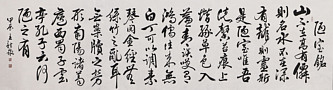 陋室銘
山不在高有僊
則名水不在深
有龍則靈斯
是陋室唯吾
德馨苔痕上
階綠草色入
簾青談笑有
鴻儒往來無
白丁可以調素
琴閱金經無
絲竹之亂耳
無案牘之勞
形南陽諸葛
廬西蜀子雲
亭孔子云何
陋之有